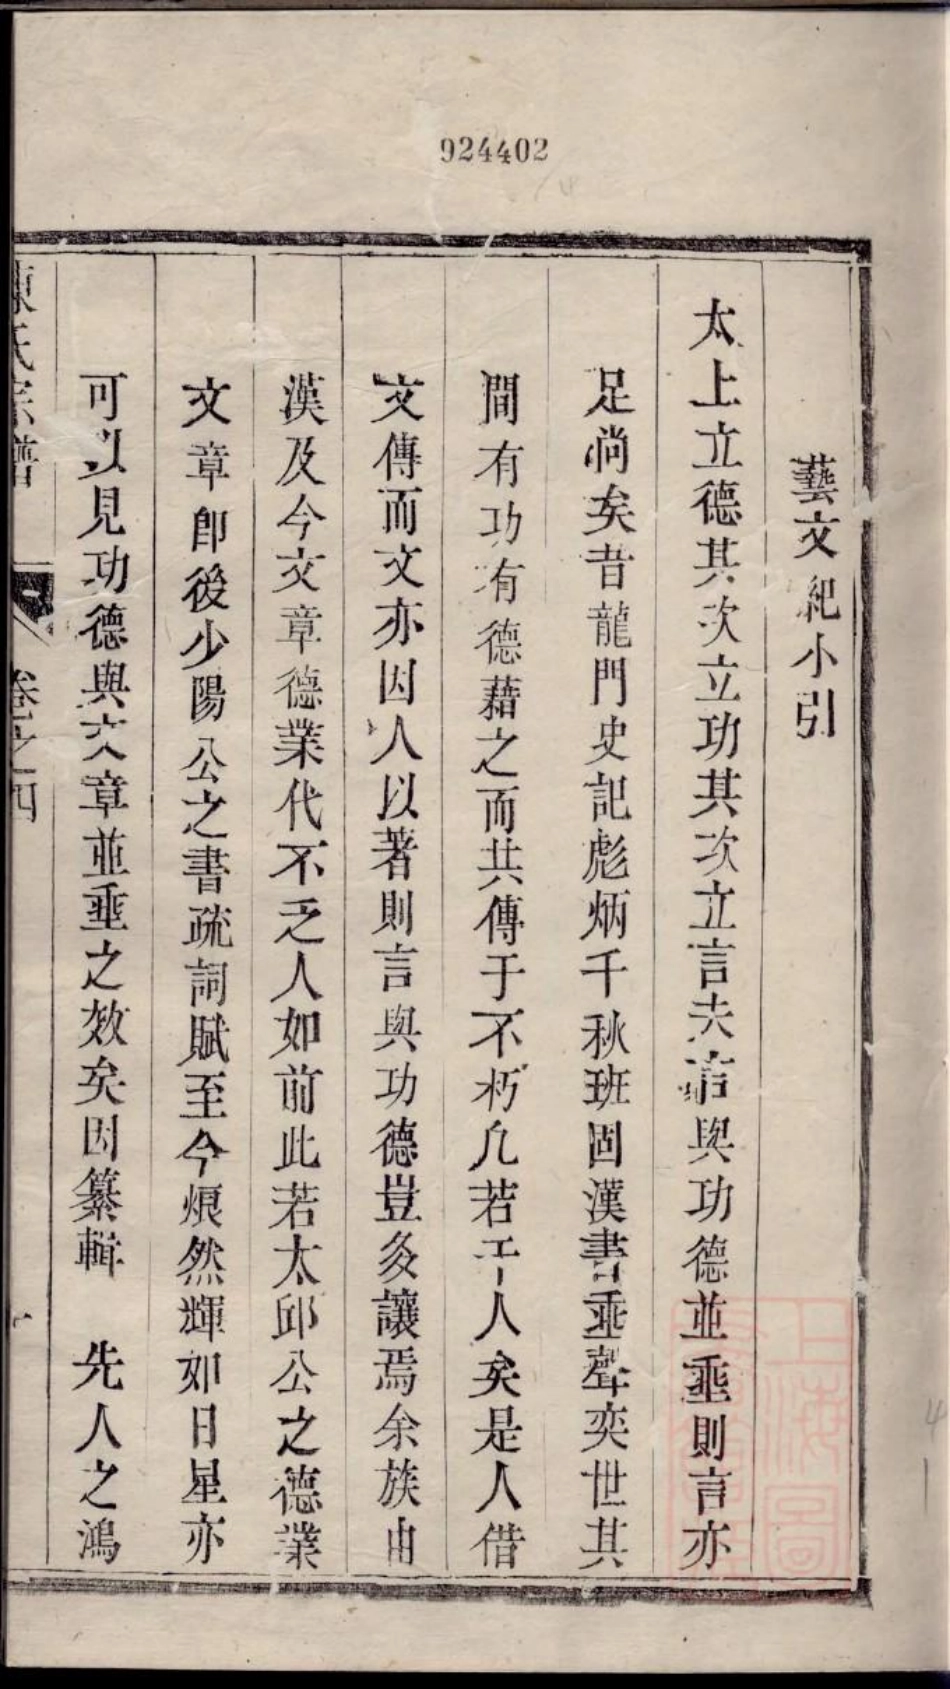 924402
藝文紀小引
太上立德其次立功其次立言夫言與功德並垂則言亦
足尚矣昔龍門史記彪炳千秋班固漢書垂聲奕世其
間有功有德藉之而共傳于不朽几若干人矣是人借
文傳而文亦因人以著則言與功德豈多讓焉余族由
漢及今文章德業代不乏人如前此若太邱公之德業
文章即後少陽公之書疏詞賦至今烺然輝如日星亦
可以見功德與文章並垂之效矣因纂輯　先人之鴻
陳氏宗譜　卷之四　一
上海圖